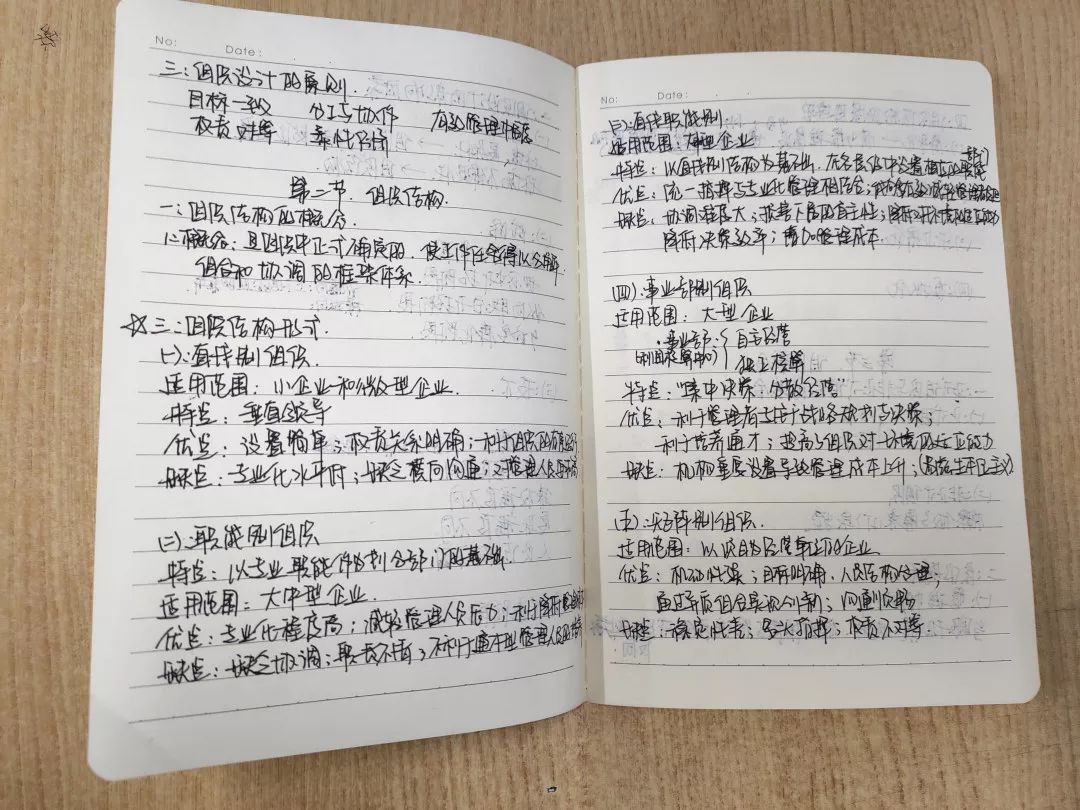 No:
Date:
三:组织设计的原则.
目标一致 分工与协作 有效管理幅度
权责对等 柔性经济
第二节.组织结构.
一:组织结构的概念.
1:概念:是组织中正式确定的,使工作任务得以分解.
组合和协调的框架体系.
☆三:组织结构形式.
(一):直线制组织
适用范围:小企业和微型企业.
特点:垂直领导
优点:设置简单;权责关系明确;利于组织的有序运行
缺点:专业化水平低;缺乏横向沟通;对管理人员要求高
(二):职能制组织
特点:以专业职能作为划分部门的基础.
适用范围:大中型企业.
优点:专业化程度高;减轻管理人员压力;利于降低管理
缺点:缺乏协调;职责不清;不利于通才型管理人员的培养
No:
Date:
(三):直线职能制
适用范围:大中型企业
特点:以直线制结构为基础,在各层级中设置相应的职能部门
优点:统一指挥与专业化管理相结合;
缺点:协调难度大;损害下属的自主性;降低对环境的适应能力
降低决策效率;增加管理成本
(四):事业部制组织
适用范围:大型企业
事业部: { 自主经营
(利润核算中心) 独立核算
特点:“集中决策,分散经营”
优点:利于管理者专注于战略规划与决策;
利于培养通才;提高组织对环境的适应能力
缺点:机构重复设置导致管理成本上升;(易滋生本位主义)
(五):矩阵制组织.
适用范围:以项目为经营单位的企业
优点:机动性强;目标明确、人员结构合理;
通过异质组合实现创新;沟通顺畅
缺点:稳定性差;多头指挥;权责不对等